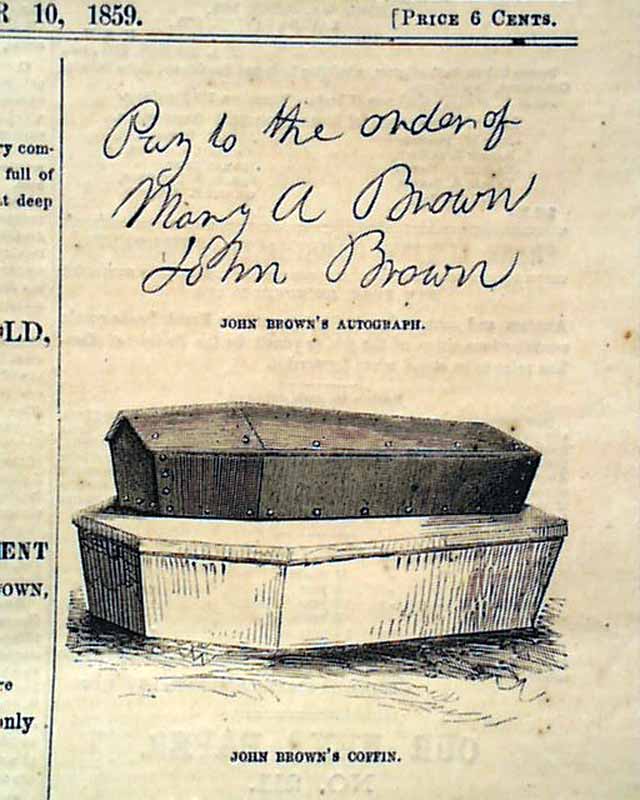 R 10, 1859.
[PRICE 6 CENTS.
ry com-
full of
t deep
OLD,
ENT
OWN,
re
only
Pay to the order of
Mary A Brown
John Brown
JOHN BROWN'S AUTOGRAPH.
JOHN BROWN'S COFFIN.